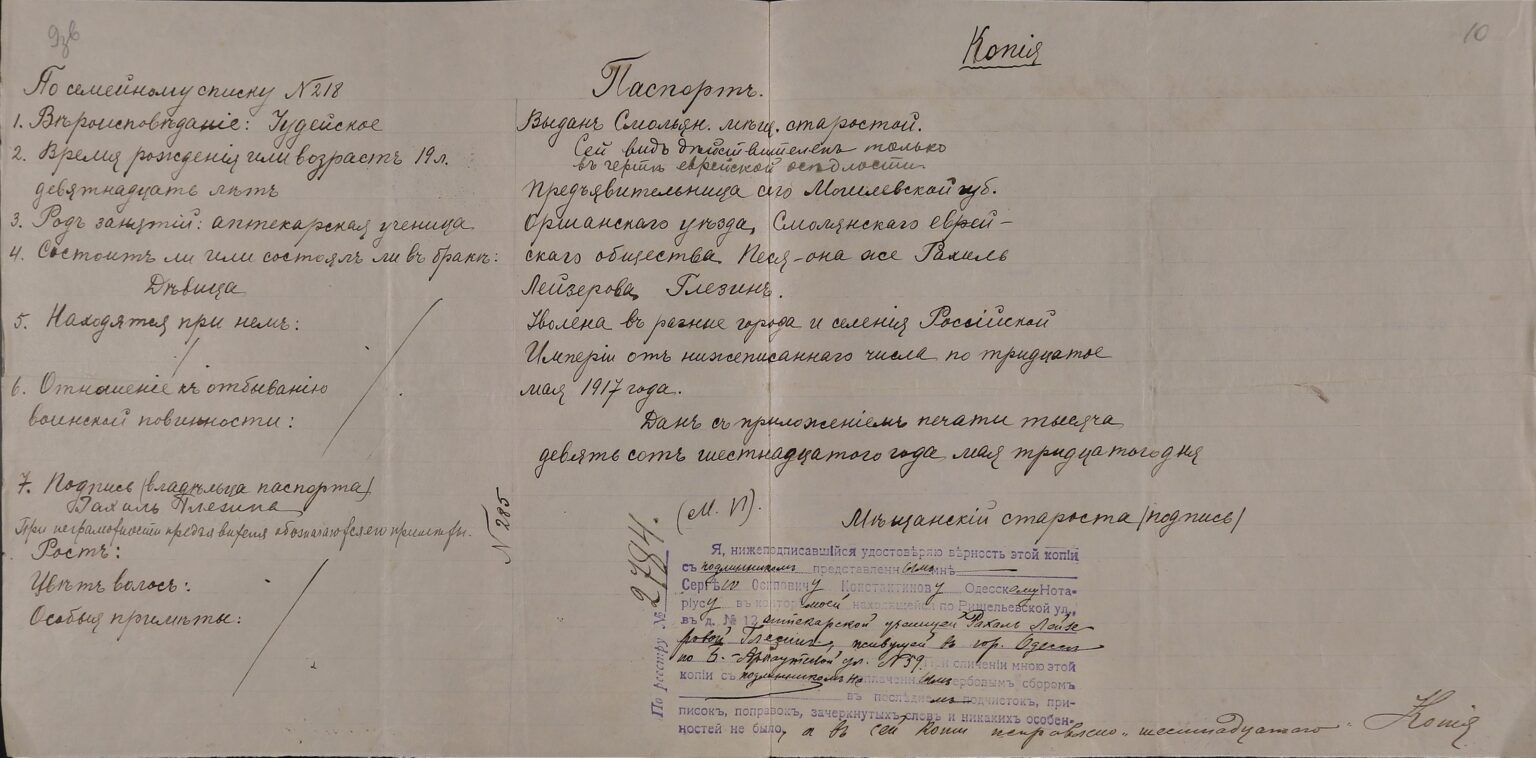 10
Копія
По семейному списку №218
1. Вѣроисповѣданіе: Іудейское
2. Время рожденія или возрастъ 19 л.
девятнадцать лѣтъ
3. Родъ занятій: аптекарская ученица
4. Состоитъ ли или состоялъ ли въ бракѣ:
Дѣвица
5. Находятся при немъ:
6. Отношеніе къ отбыванію
воинской повинности:
7. Подпись (владѣльца паспорта)
Рахиль Глезина
При неграмотности предъявителя обозначаются его примѣты.
Ростъ:
Цвѣтъ волосъ:
Особыя примѣты:
№ 285
Паспортъ.
Выданъ Смольян. мѣщ. старостой.
Сей видъ дѣйствителенъ только
въ чертѣ еврейской осѣдлости
Предъявительница сего Могилевской губ.
Оршанскаго уѣзда, Смолянскаго еврей-
скаго общества Песя-она же Рахиль
Лейзерова Глезинъ.
Уволена въ разные города и селенія Россійской
Имперіи отъ нижеписаннаго числа по тридцатое
мая 1917 года.
Данъ съ приложеніемъ печати тысяча
девятьсотъ шестнадцатого года мая тридцатого дня
(М. П).
Мѣщанскій староста (подпись)
По реестру № 2784.
Я, нижеподписавшійся удостовѣряю вѣрность этой копіи
съ подлинникомъ представленнымъ мнѣ
Сергѣю Осиповичу Константинову Одесскому Нота-
ріусу въ конторѣ моей находящейся по Ришельевской ул.,
въ д. № 12 аптекарской ученицей Рахиль Лейзе
ровой Глезинъ, живущей въ гор. Одессѣ
по Б.-Арнаутской ул. №39. При сличеніи мною этой
копіи съ подлинникомъ не оплаченнымъ гербовымъ сборомъ
въ послѣднемъ подчистокъ, при-
писокъ, поправокъ, зачеркнутыхъ словъ и никакихъ особен-
ностей не было, а въ сей копіи исправлено „шестнадцатого“
Копія